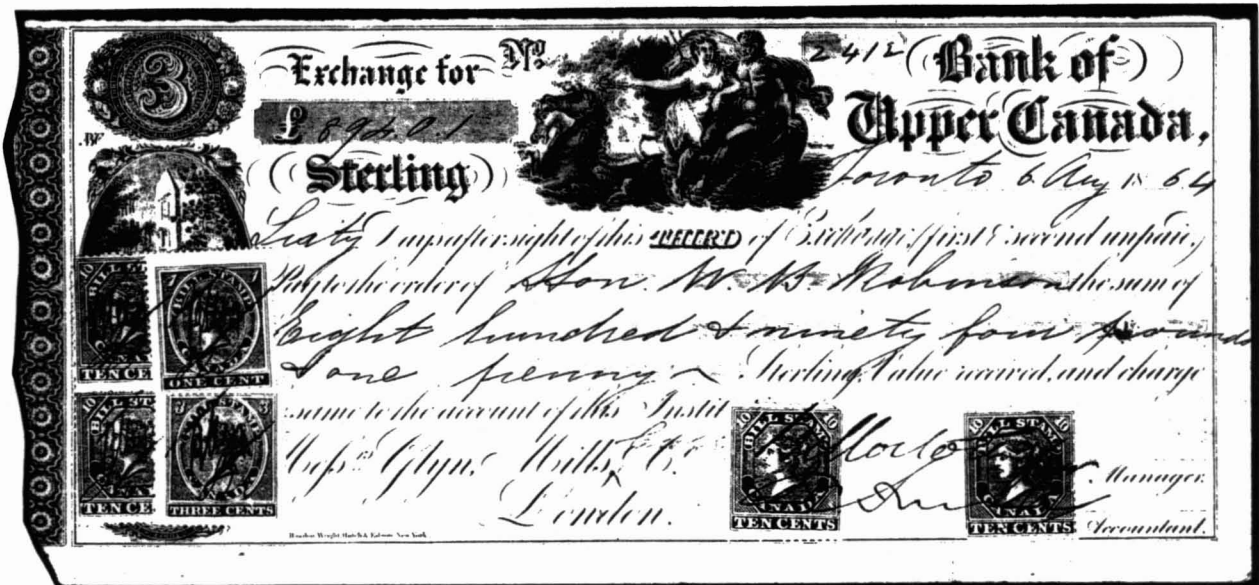 3
Exchange for
No 2412
Bank of
Upper Canada,
£ 894.0.1
Sterling
Toronto 6 Aug 1864
Sixty Days after sight of this THIRD of Exchange (first & second unpaid)
Pay to the order of Hon. W. B. Robinson the sum of
Eight hundred & ninety four pounds
& one penny Sterling, Value received, and charge
same to the account of this Instit
Messrs Glyn, Mills & Co.
London.
Manager.
Accountant.
10
BILL ST
TEN CE
1
BILL STAMP
ONE CENT
10
BILL ST
TEN CE
3 3
BILL STAMP
CANADA
THREE CENTS
10 10
BILL STAMP
CANADA
TEN CENTS
10
BILL STAMP
CANADA
TEN CENTS
Rawdon Wright Hatch & Edson New York